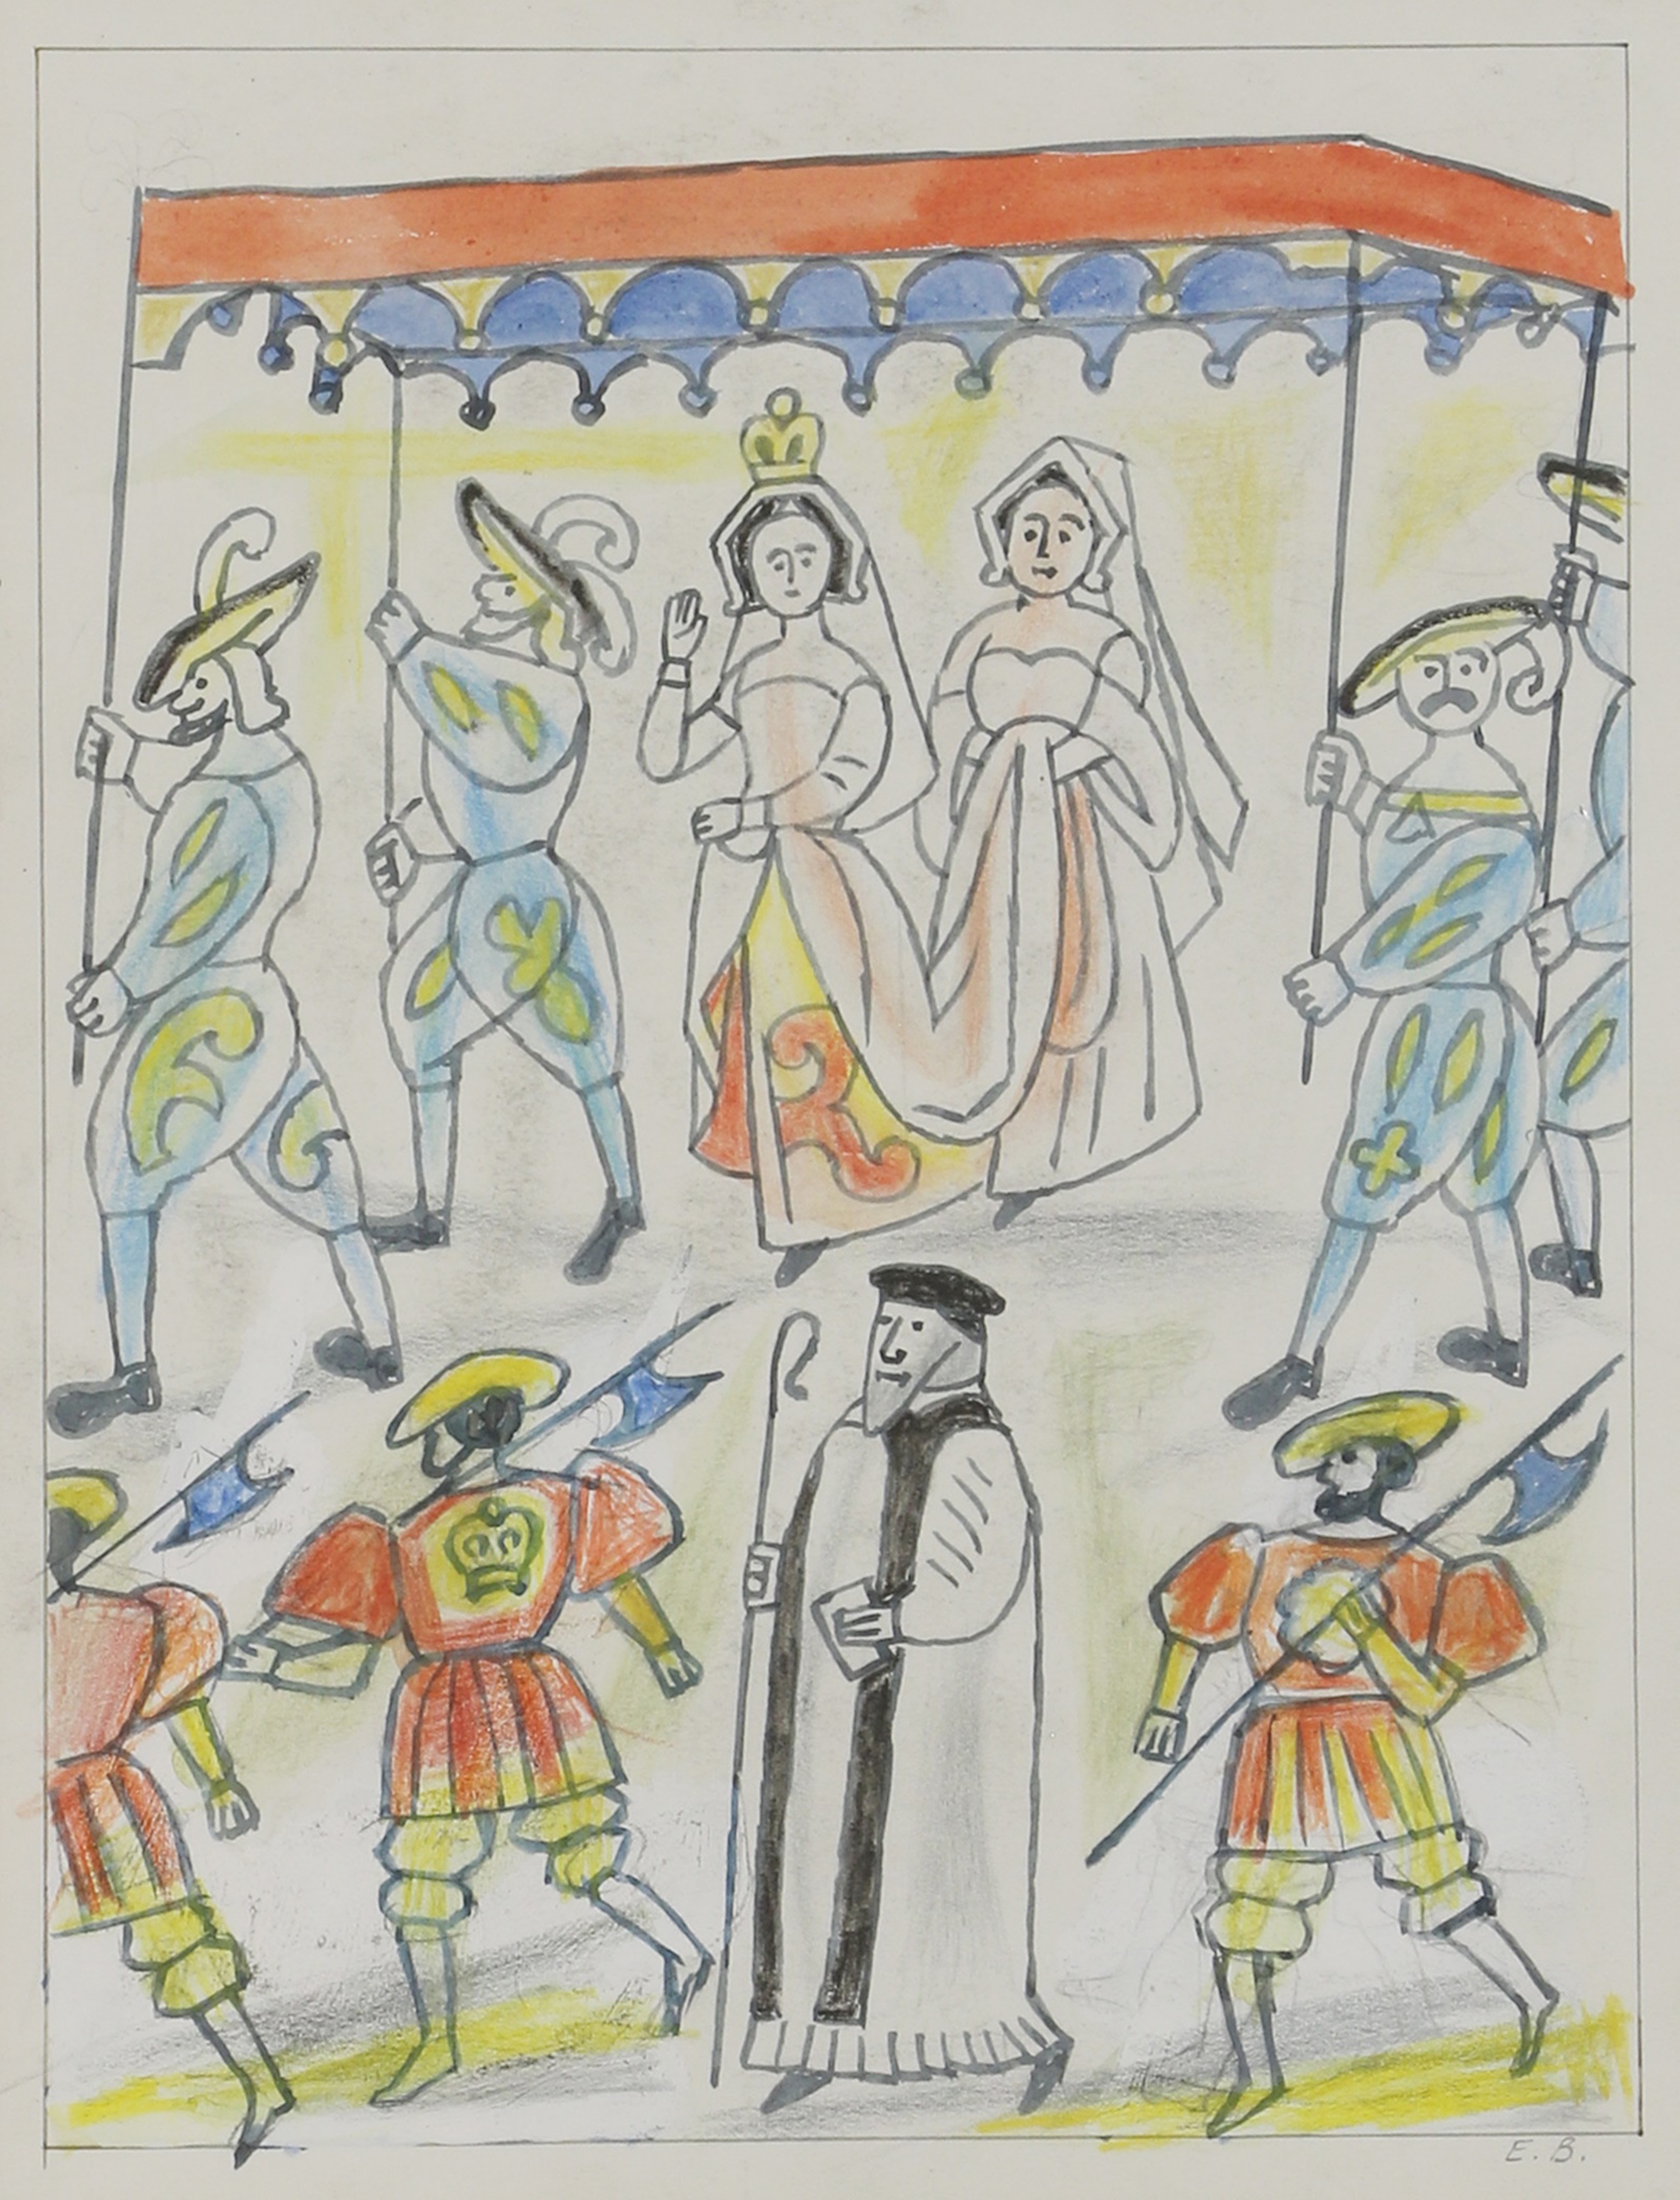 E. B.